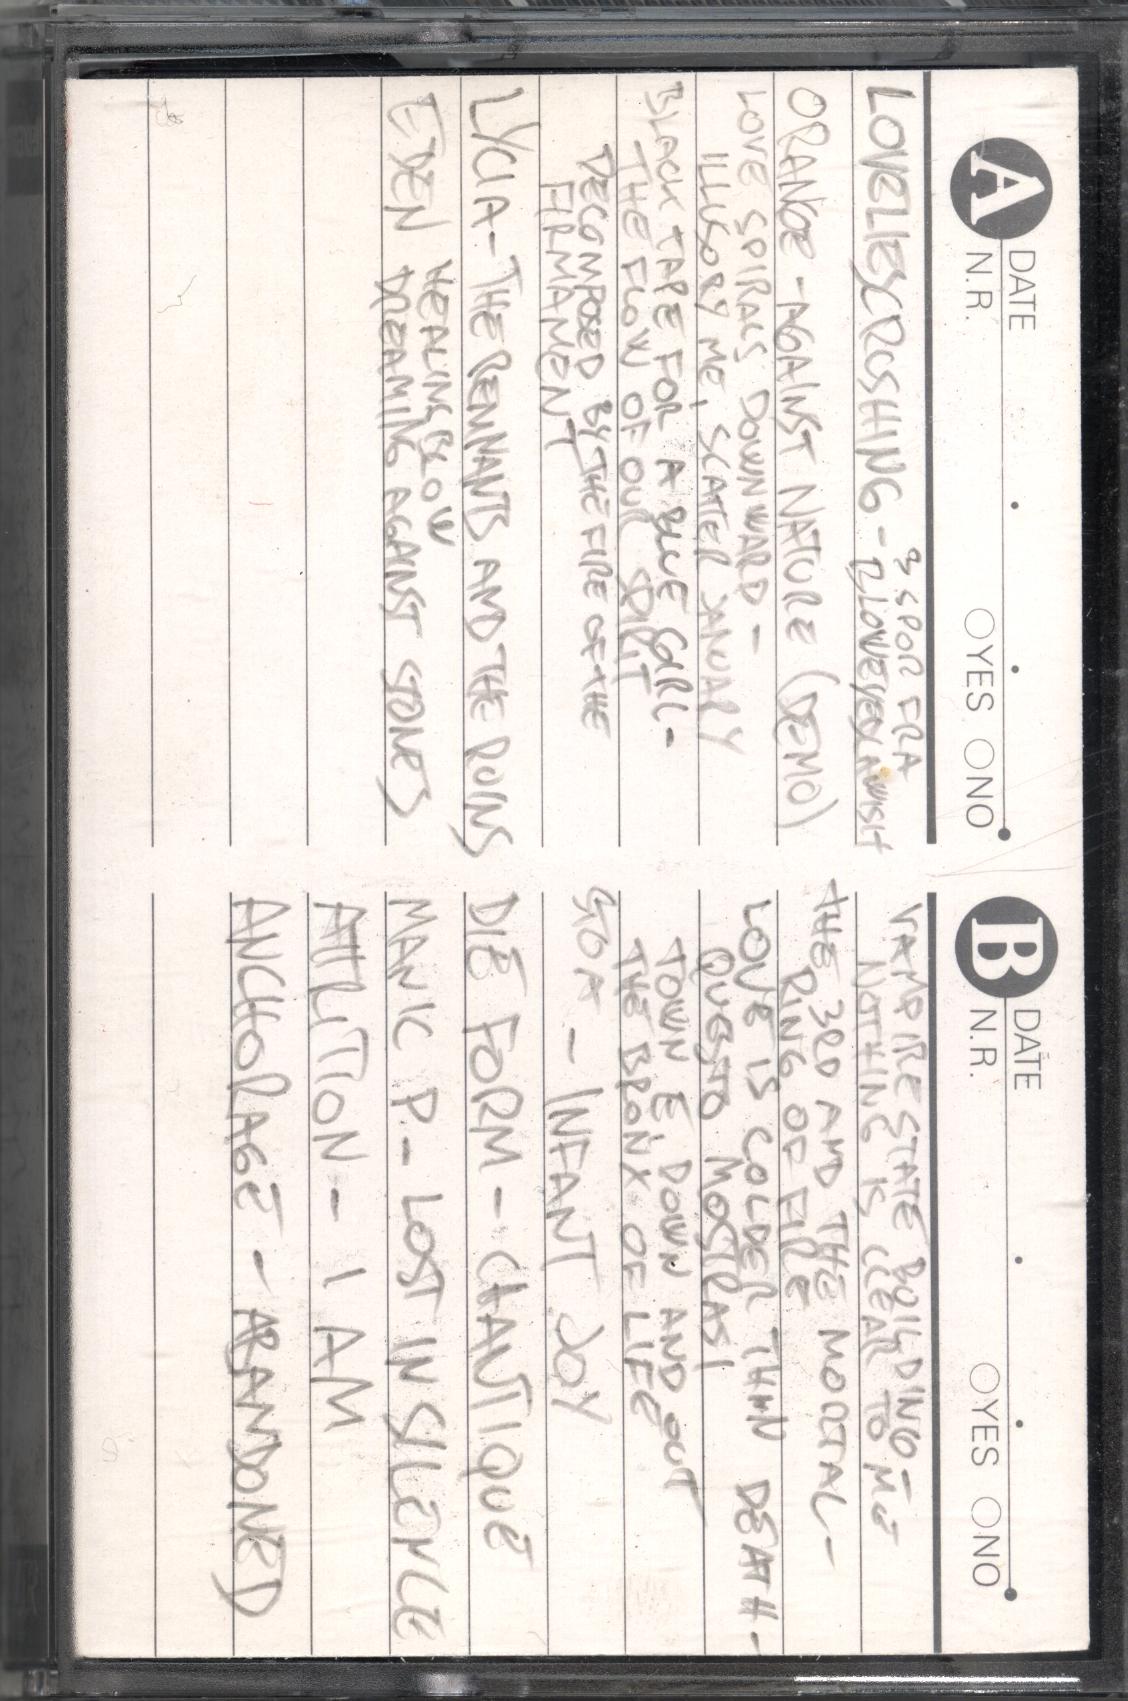 A DATE
N.R. YES NO
3 SPOR FRA
LOVELIESCRUSHING - BLOWEYELASHWISH
ORANGE - AGAINST NATURE (DEMO)
LOVE SPIRALS DOWNWARD -
ILLUSORY ME, SCATTER JANUARY
BLACK TAPE FOR A BLUE GIRL -
THE FLOW OF OUR SPIRIT
DECOMPOSED BY THE FIRE OF THE
FIRMAMENT
LYCIA - THE REMNANTS AND THE RUINS
EDEN HEALINGBLOW
DREAMING AGAINST STONES
B DATE
N.R. YES NO
VAMPIRE STATE BUILDING -
NOTHING IS CLEAR TO ME
THE 3RD AND THE MORTAL -
RING OF FIRE
LOVE IS COLDER THAN DEATH -
QUESTO MOSTRASI
TOWN E, DOWN AND OUT
THE BRONX OF LIFE
GOA - INFANT JOY
DIE FORM - CHANTIQUE
MANIC P - LOST IN SILENCE
ATTRITION - I AM
ANCHORAGE - ABANDONED